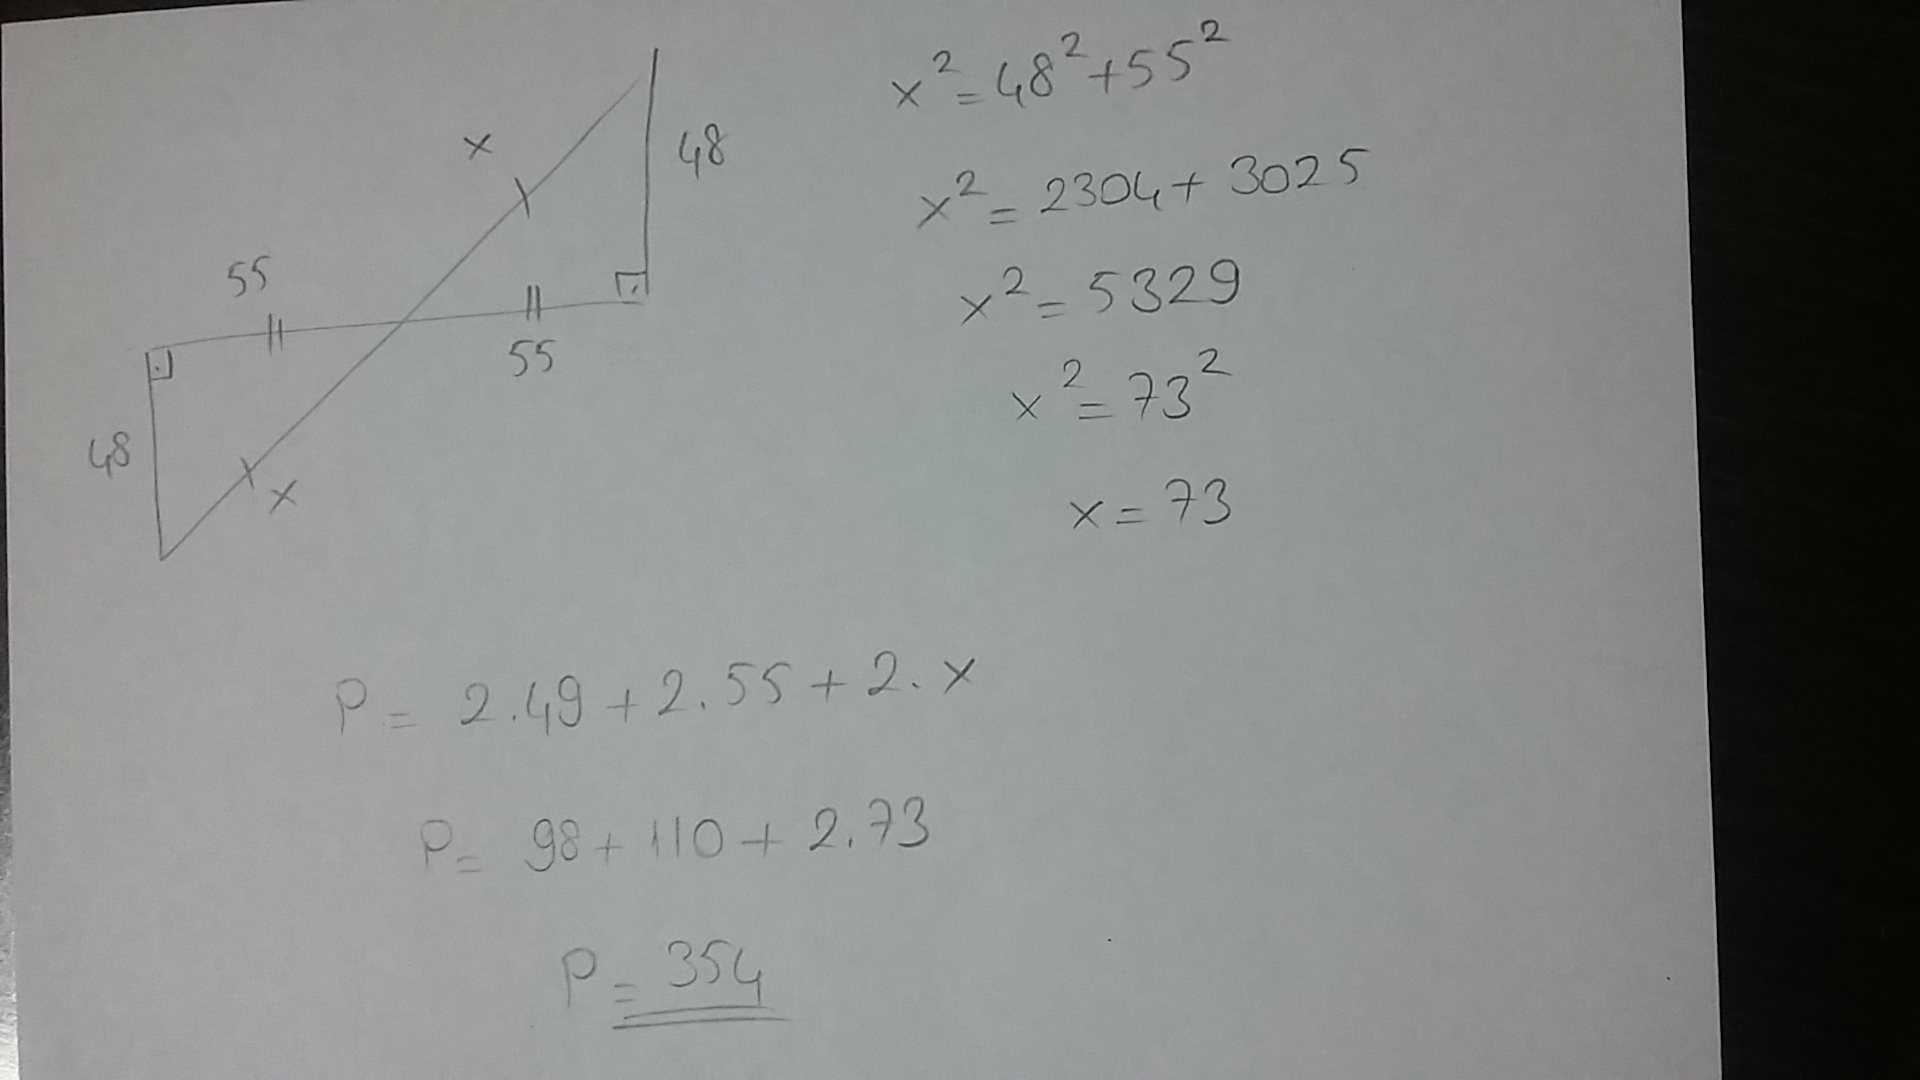 x
48
55
55
48
x
x² = 48² + 55²
x² = 2304 + 3025
x² = 5329
x² = 73²
x = 73
P = 2.49 + 2.55 + 2.x
P = 98 + 110 + 2.73
P = 354